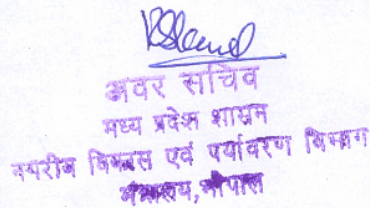 अवर सचिव
मध्य प्रदेश शासन
नगरीय विकास एवं पर्यावरण विभाग
मंत्रालय, भोपाल